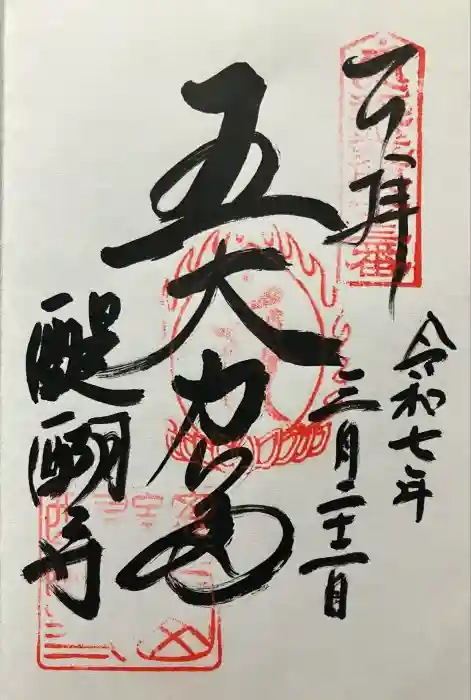 奉拝
令和七年
三月二十二日
五大力尊
醍醐寺